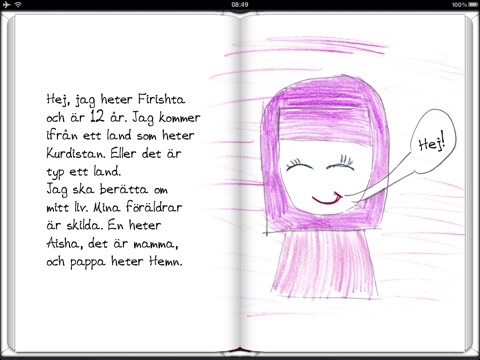 08:49
100%
Hej, jag heter Firishta
och är 12 år. Jag kommer
ifrån ett land som heter
Kurdistan. Eller det är
typ ett land.
Jag ska berätta om
mitt liv. Mina föräldrar
är skilda. En heter
Aisha, det är mamma,
och pappa heter Hemn.
Hej!